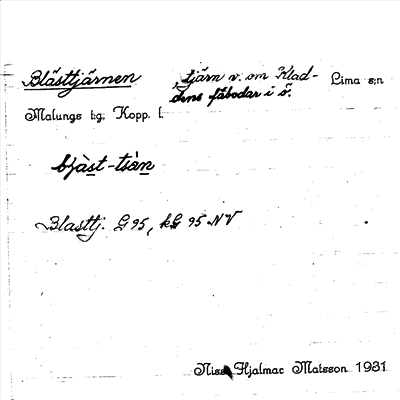 Blåsttjärnen , tjärn v. om Klad- Lima s:n
dens fäbodar i ö.
Malungs t:g. Kopp. l.
bjàst-tsàn
Blasttj. G 95, kG 95 NV
Niss Hjalmar Matsson 1931